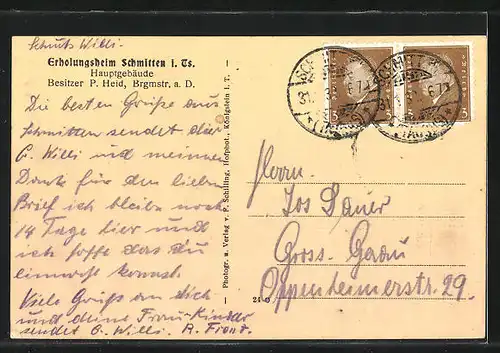 Schuts Willi.
Erholungsheim Schmitten i. Ts.
Hauptgebäude
Besitzer P. Heid, Brgmstr. a. D.
Die besten Grüße aus
Schmitten sendet dir
C. Willi und meinen
Dank für den lieben
Brief ich bleibe noch
14 Tage hier und
ich hoffe das du
einmal kommst.
Viele Grüße an dich
und deine Frau + Kinder
sendet C. Willi. A. Franz.
Photogr. u. Verlag v. P. Schilling, Hofphot., Königstein i. T.
24
Herrn
Jos Sauer
Gross-Gerau
Oppenheimerstr. 29.
3
3